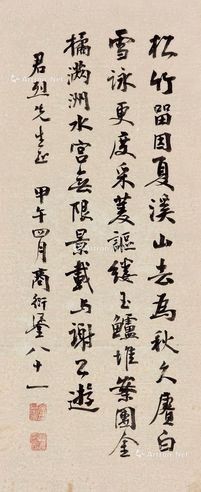 松竹留因夏溪山去為秋久賡白
雪詠更度采菱謳縷玉鱸堆案團金
橘滿洲水宮無限景載与謝公遊
君烈先生正 甲午四月商衍鎏八十一